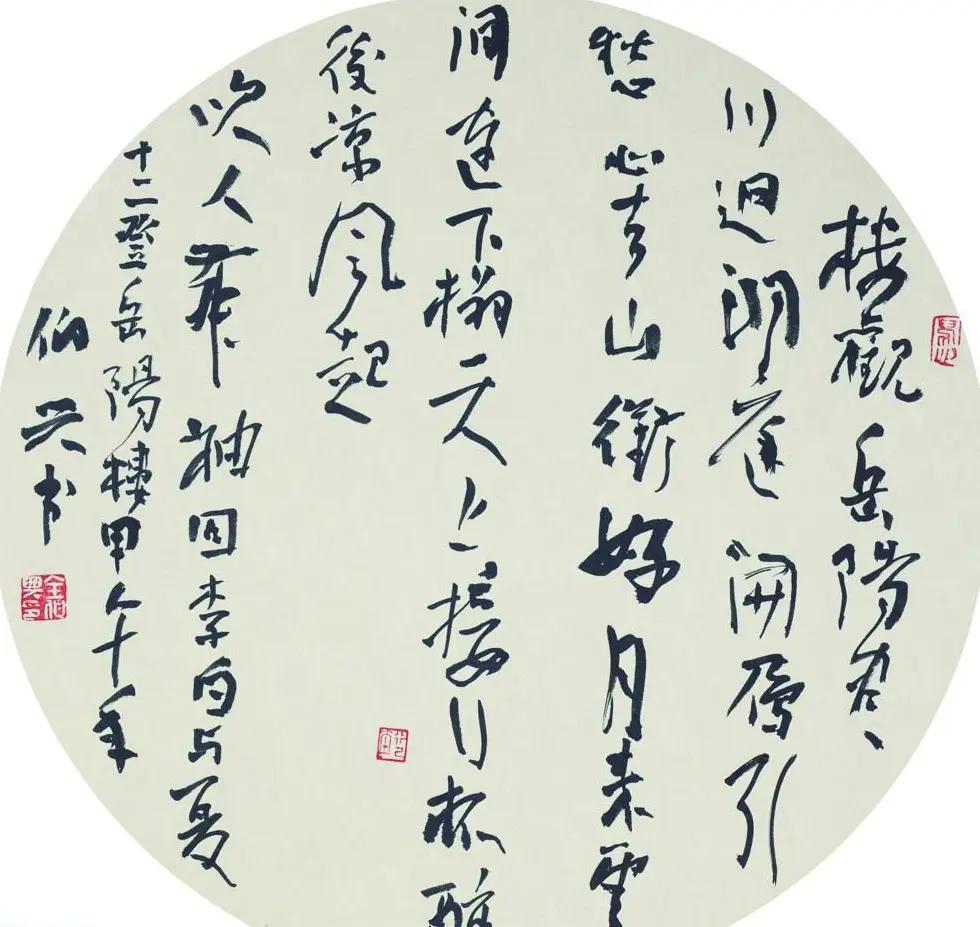 楼觀岳陽尽
川迥洞庭開雁引
愁心去山銜好月来雲
间連下榻天上接行杯醉
後涼風起
吹人舞袖回李白与夏
十二登岳陽樓甲午年
伯兴书
金伯興印